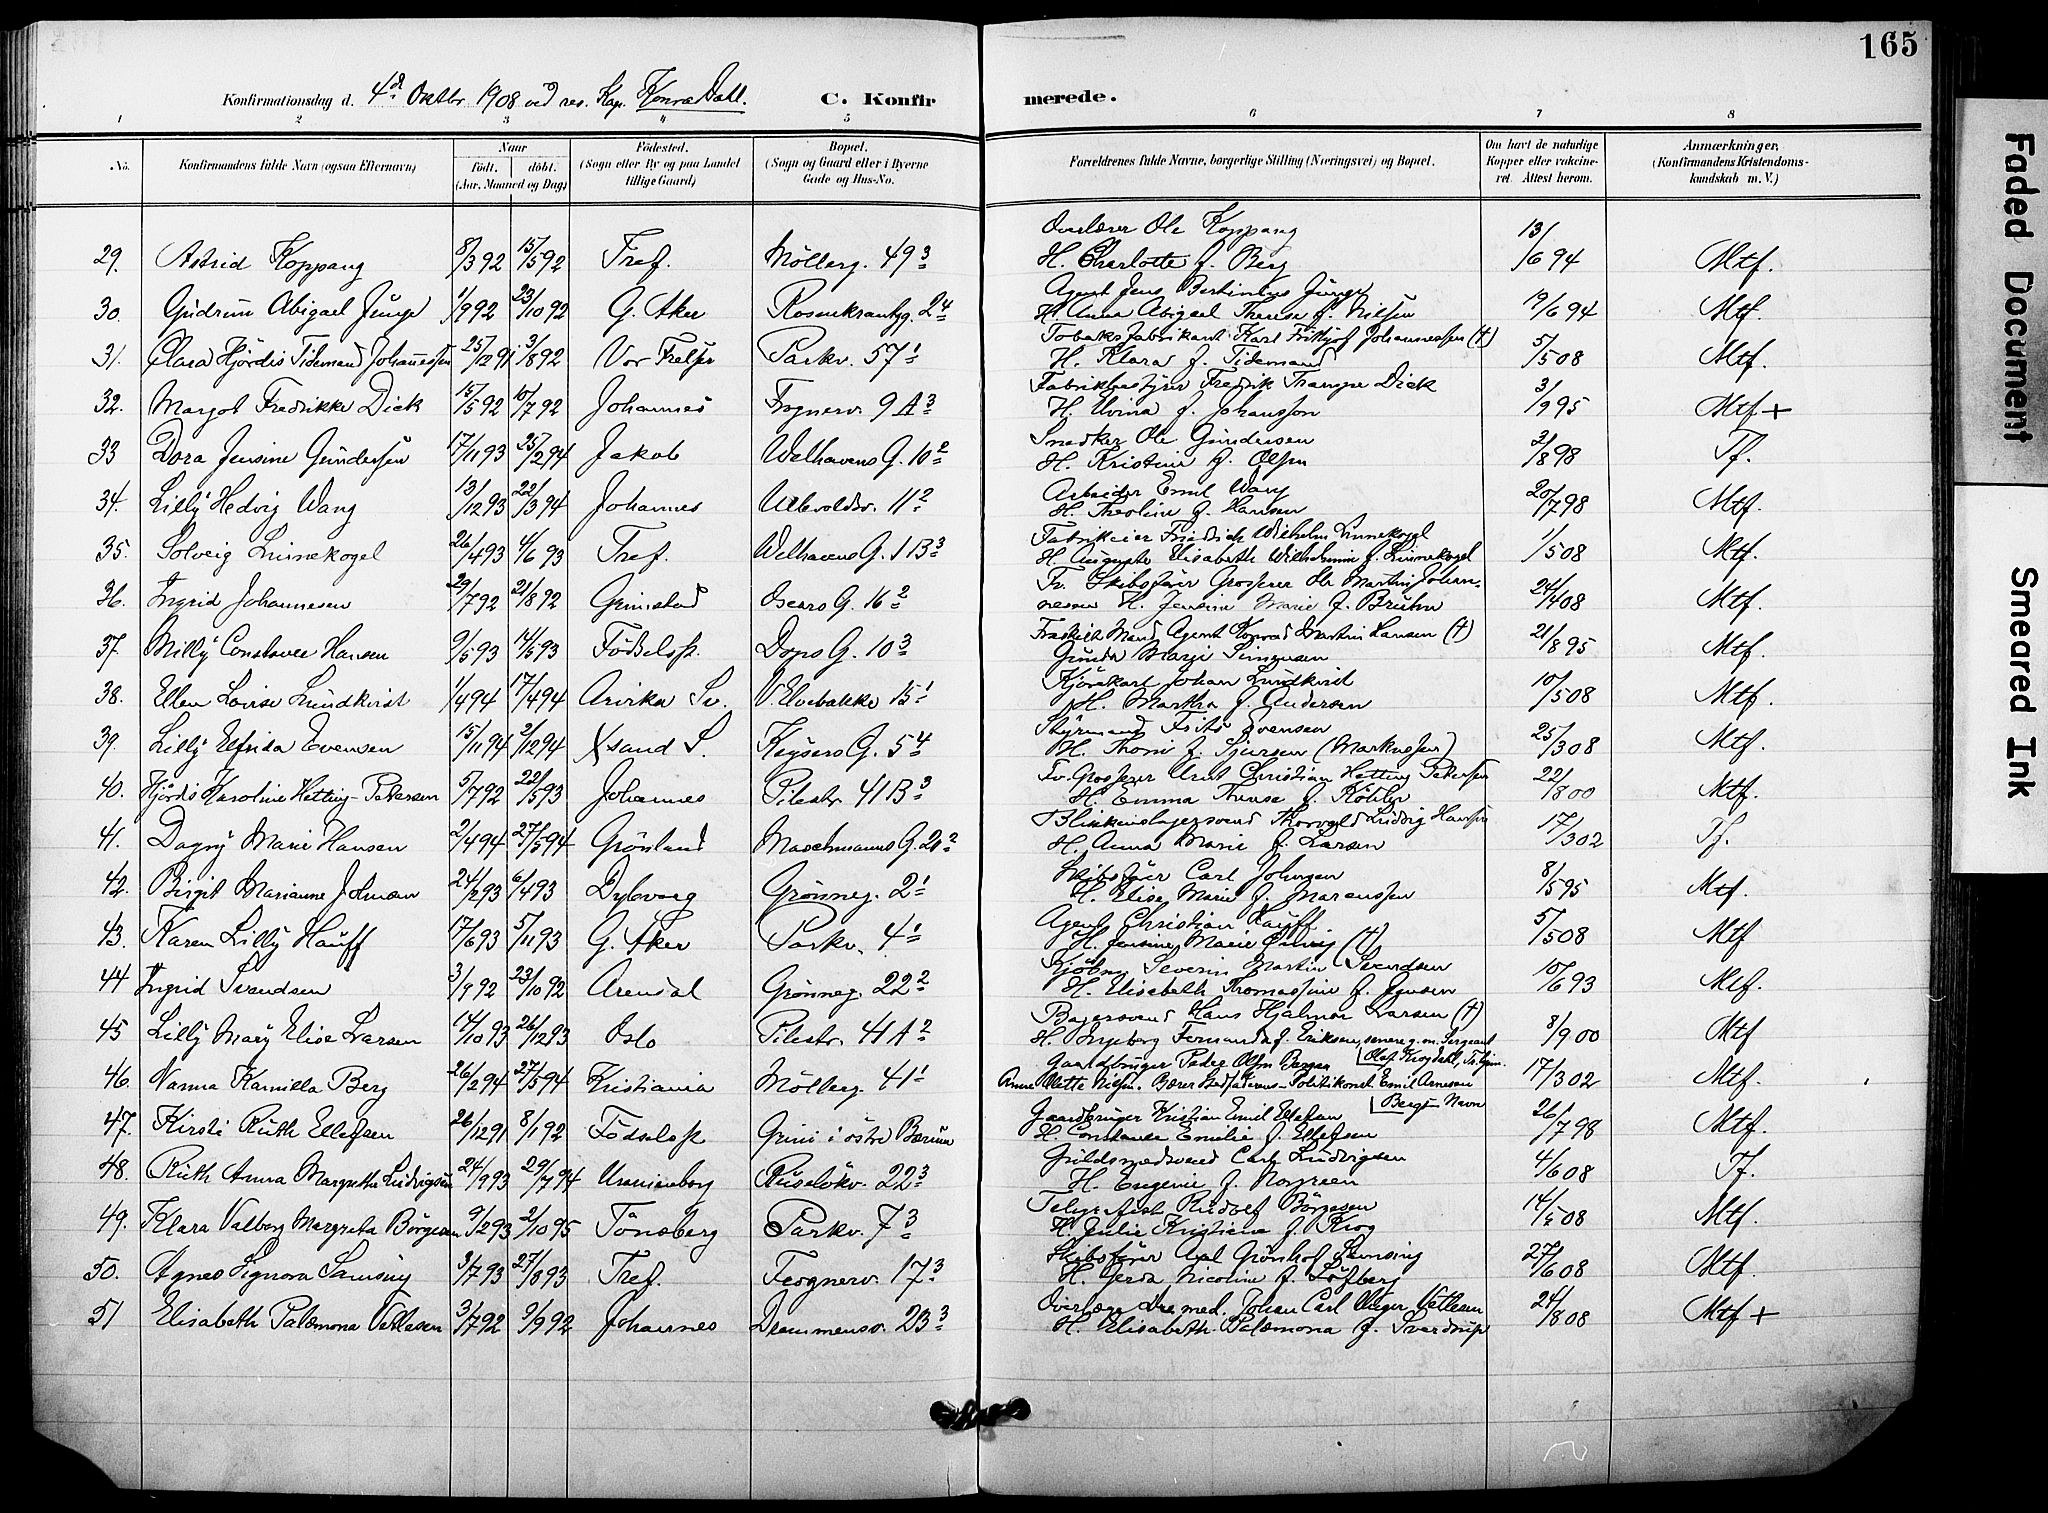 165
Konfirmationsdag d. 4de Oktbr 1908 ved res. Kap. Konr. Dahl.
C. Konfirmerede.
1 2 3 4 5 6 7 8
No.
Konfirmandens fulde Navn (ogsaa Efternavn)
Naar
født. døbt.
(Aar, Maaned og Dag)
Fødested.
(Sogn eller By og paa Landet
tillige Gaard)
Bopæl.
(Sogn og Gaard eller i Byerne
Gade og Hus-No.
Forældrenes fulde Navne, borgerlige Stilling (Næringsvei) og Bopæl.
Om havt de naturlige
Kopper eller vakcine-
ret. Attest herom.
Anmærkninger,
(Konfirmandens Kristendoms-
kundskab m. V.)
Overlærer Ole Koppang
29. Astrid Koppang 8/3 92 15/5 92 Tref. Möllerg. 49 3 H. Charlotte f. Berg 13/6 94 Mtf.
Agent Jens Bertinius Junge
30. Gudrun Abigael Junge 1/9 92 23/10 92 G. Aker Rosenkrantzg. 24 H. Anna Abigael Therese f. Nilsen 19/6 94 Mtf.
Tobaksfabrikant Karl Frithjof Johannessen (†)
31. Clara Hjördis Tidemand Johannessen 25/12 91 3/8 92 Vor Frelser Parkv. 57 1 H. Klara f. Tidemand 5/5 08 Mtf.
Fabrikbestyrer Fredrik Trampe Dick
32. Margot Fredrikke Dick 15/5 92 10/7 92 Johannes Frognerv. 9 A 3 H. Alvina f. Johansson 3/9 95 Mtf +
Snedker Ole Gundersen
33 Dora Jensine Gundersen 17/11 93 25/2 94 Jakob Welhavens G. 10 2 H. Kristine f. Olsen 2/8 98 Tf.
Arbeider Emil Wang
34. Lilly Hedvig Wang 13/12 93 22/3 94 Johannes Ullevoldsv. 11 2 H. Theoline f. Hansen 20/7 98 Mtf.
Fabrikeier Friedrich Wilhelm Linnekogel
35. Solveig Linnekogel 26/4 93 4/6 93 Tref. Welhavens G. 1 B 3 H. Auguste Elisabeth Wilhelmine f. Linnekogel 1/5 08 Mtf.
Fv. Skibsfører Grosserer Ole Martin Johan-
36. Ingrid Johannesen 29/7 92 21/8 92 Grimstad Oscars G. 16 2 nesen H. Jensine Marie f. Bruhn 24/4 08 Mtf.
Fraskilt Mand Agent Konrad Martin Hansen (†)
37. Milly Constance Hansen 9/5 93 14/5 93 Födselsst. Dops G. 10 3 Gunda Marie Simonsen 21/8 95 Mtf.
Kjörekarl Johan Lundkvist
38. Ellen Lovise Lundkvist 1/4 94 17/4 94 Arvika Sv. V. Elvebakke 15 1 H. Martha f. Andersen 10/5 08 Mtf.
Styrmand Frits Evensen
39. Lilly Elfrida Evensen 15/11 94 2/12 94 Xsand S. Keysers G. 5 4 H. Thoni f. Sjursen (Markussen) 25/3 08 Mtf.
Fv. Grosserer Arnt Christian Hetting Petersen
40. Hjördis Karoline Hetting-Petersen 5/7 92 22/5 93 Johannes Pilestr. 41 B 3 H. Emma Therese f. Köhler 22/8 00 Mtf.
Blikkenslagersvend Thorvald Ludvig Hansen
41. Dagny Marie Hansen 2/4 94 27/5 94 Grönland Maschmanns G. 20 2 H. Anna Marie f. Larsen 17/3 02 Tf.
Skibsfører Carl Johnsen
42. Birgit Marianne Johnsen 24/2 93 6/4 93 Dybvaag Grönneg. 2 1 H. Elise Marie f. Marenssen 8/5 95 Mtf.
Agent Christian Hauff
43. Karen Lilly Hauff 17/6 93 5/11 93 G. Aker Parkv. 4 1 H. Jensine Marie (†) 5/5 08 Mtf
Kjöbm. Severin Martin Svendsen
44 Ingrid Svendsen 3/9 92 23/10 92 Arendal Grönneg. 22 2 H. Elisabeth Thomassine f. Jensen 10/6 93 Mtf.
Bagersvend Hans Hjalmar Larsen (†)
45 Lilly Mary Elise Larsen 14/10 93 26/12 93 Oslo Pilestr. 41 A 2 H. Ingeborg Fernanda f. Eriksen, senere g. m. Sergeant 8/9 00 Mtf
Olaf Krogdahl
Gaardbruger Peder Olsen Bergan
46. Nanna Kamilla Berg 26/2 94 27/5 94 Kristiania Möllerg. 41 1 Anne Olette Nilsen. Bærer Stedfaderens - Politikonst. Emil Arnesen 17/3 02 Mtf.
Bergs Navn
Gaardbruger Kristian Emil Ellefsen
47. Kirsti Ruth Ellefsen 26/12 91 8/1 92 Födselsst Grini i östre Bærum H. Constance Emilie f. Ellefsen 26/7 98 Mtf.
Guldsmedsvend Carl Ludvigsen
48. Ruth Anna Margrethe Ludvigsen 24/9 93 29/7 94 Uranienborg Ruselökv. 22 3 H. Eugenie f. Norgreen 4/6 08 Tf.
Telegrafist Rudolf Börgesen
49. Klara Valborg Margreta Börgesen 9/2 93 2/10 95 Tönsberg Parkv. 7 3 H. Julie Kristiane f. Krog 14/5 08 Mtf.
Skibsfører Axel Grönhof Samsing
50. Agnes Signora Samsing 3/7 93 27/8 93 Tref. Frognerv. 17 3 H. Gerda Nicoline f. Löfberg 27/6 08 Mtf.
Overlæge Dr. med. Johan Carl Unger Vetlesen
51 Elisabeth Palæmona Vetlesen 3/7 92 9/9 92 Johannes Drammensv. 23 3 H. Elisabeth Palæmona f. Sverdrup 24/8 08 Mtf +
Faded Document
Smeared Ink